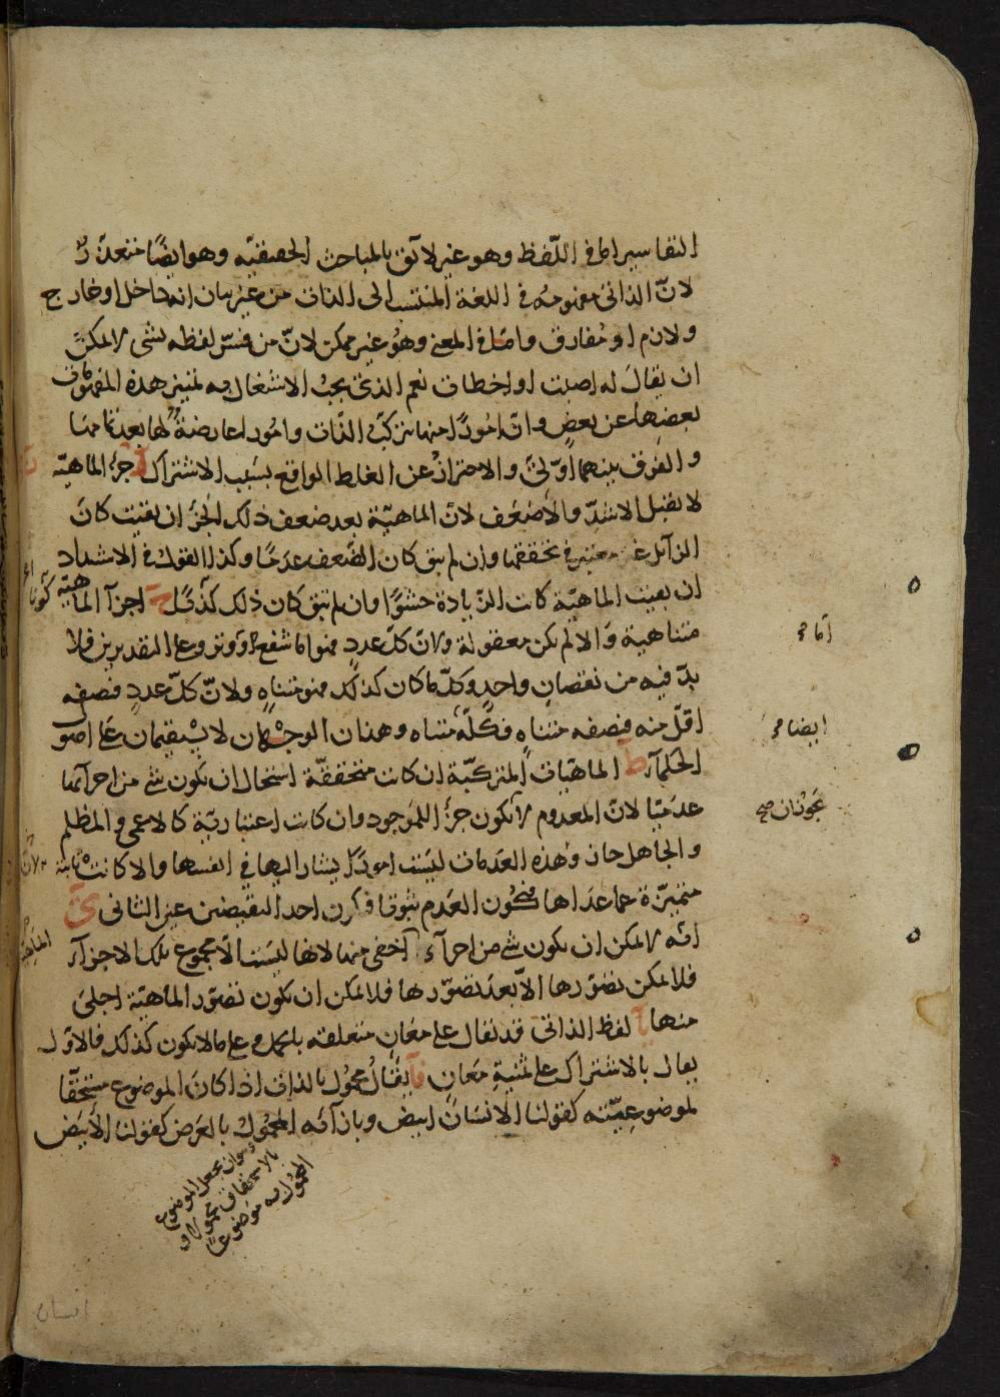 التفاسير اما فى اللّفظ وهو غير لائق بالمباحث الحقيقيّه وهو ايضًا متعذّر
لانّ الذاتى مفهومه فى اللغة المنتسب الى الذات من غير بيان انه داخل او خارج
ولازم او مُفارق واما فى المعنى وهُو غير ممكن لانّ من فسّر لفظه بشى لا يمكن
ان يقال له اصبت او اخطات نعم الذى يجبُ الاشتغال به تمييز هذه المفهومات
بعضها عن بعضٍ وانّ امُورًا منها تتركّب الذّات وامُورا عارضةٌ لها بعد تمامها
والفرق بينهما اوّلىّ والاحترازُ عن الغلط الواقع بسَبب الاشتراك جزء الماهيّه
لا يقبل الاشدّ والاضعَف لانّ الماهيّة بعد ضعف ذلك الجُزء ان بقيت كانَ
الزائل غير معتبر فى تحققها وان لم يبق كان الضّعف عدمًا وكذا القول فى الاشتداد
ان بقيت الماهيّة كانت الزّيادة حشوًا وان لم تبق كان ذلك كَذلك اجزآ الماهيّه
متناهية وَالا لم يكن معقولة ولانّ كلّ عددٍ فهو اما شفعٌ او وتر وعلى التقديرين فلا
بدّ فيه من نقصان واحدٍ وكلّ ما كان كذلك فهو متناهٍ ولانّ كلّ عددٍ فنصفه
اقلّ منه فنصفه متناهٍ فكلّه متناه وهذان الوجهان لا يستقيمان على اصول
الحكمآء الماهيّات المتركّبة ان كانت متحققّة استحال ان يكون شى من اجزآئها
عدميّا لانّ المعدوم لا يكون جزءًا للموجود وان كانت اعتباريّة كالاعمى والمظلم
والجاهل جاز وهذه العَدمات ليسَت امورًا يشار اليها فى انفسها والا كانت ثابتة
متميّزة عما عدَاها فيكُون العدَم ثبوتا فيكون احد النقيضين عين الثانى
انّه لا يمكن ان يكون شى من اجزآء الماهيّة اخفى منها لانها ليسَت الّا مجموع تلك الاجزآء
فلا يمكن تصوّرها الّا بعد تصوّرها فلا يمكن ان يكون تصوّر الماهيّة اجلىَ
منها لفظ الذاتى قد يقال على معَانٍ متعلقه بالحمل وعلى ما لا يكون كذلك فالاوّل
يقال بالاشتراك على ثمنيةِ معَانٍ يقالُ محمُول بالذات اذا كانَ الموضوع مستحقّا
لموضوعيّته كقولنا الانسَان ابيض وبازآئه المحمُول بالعرَض كقولنا الابيَض
انسان